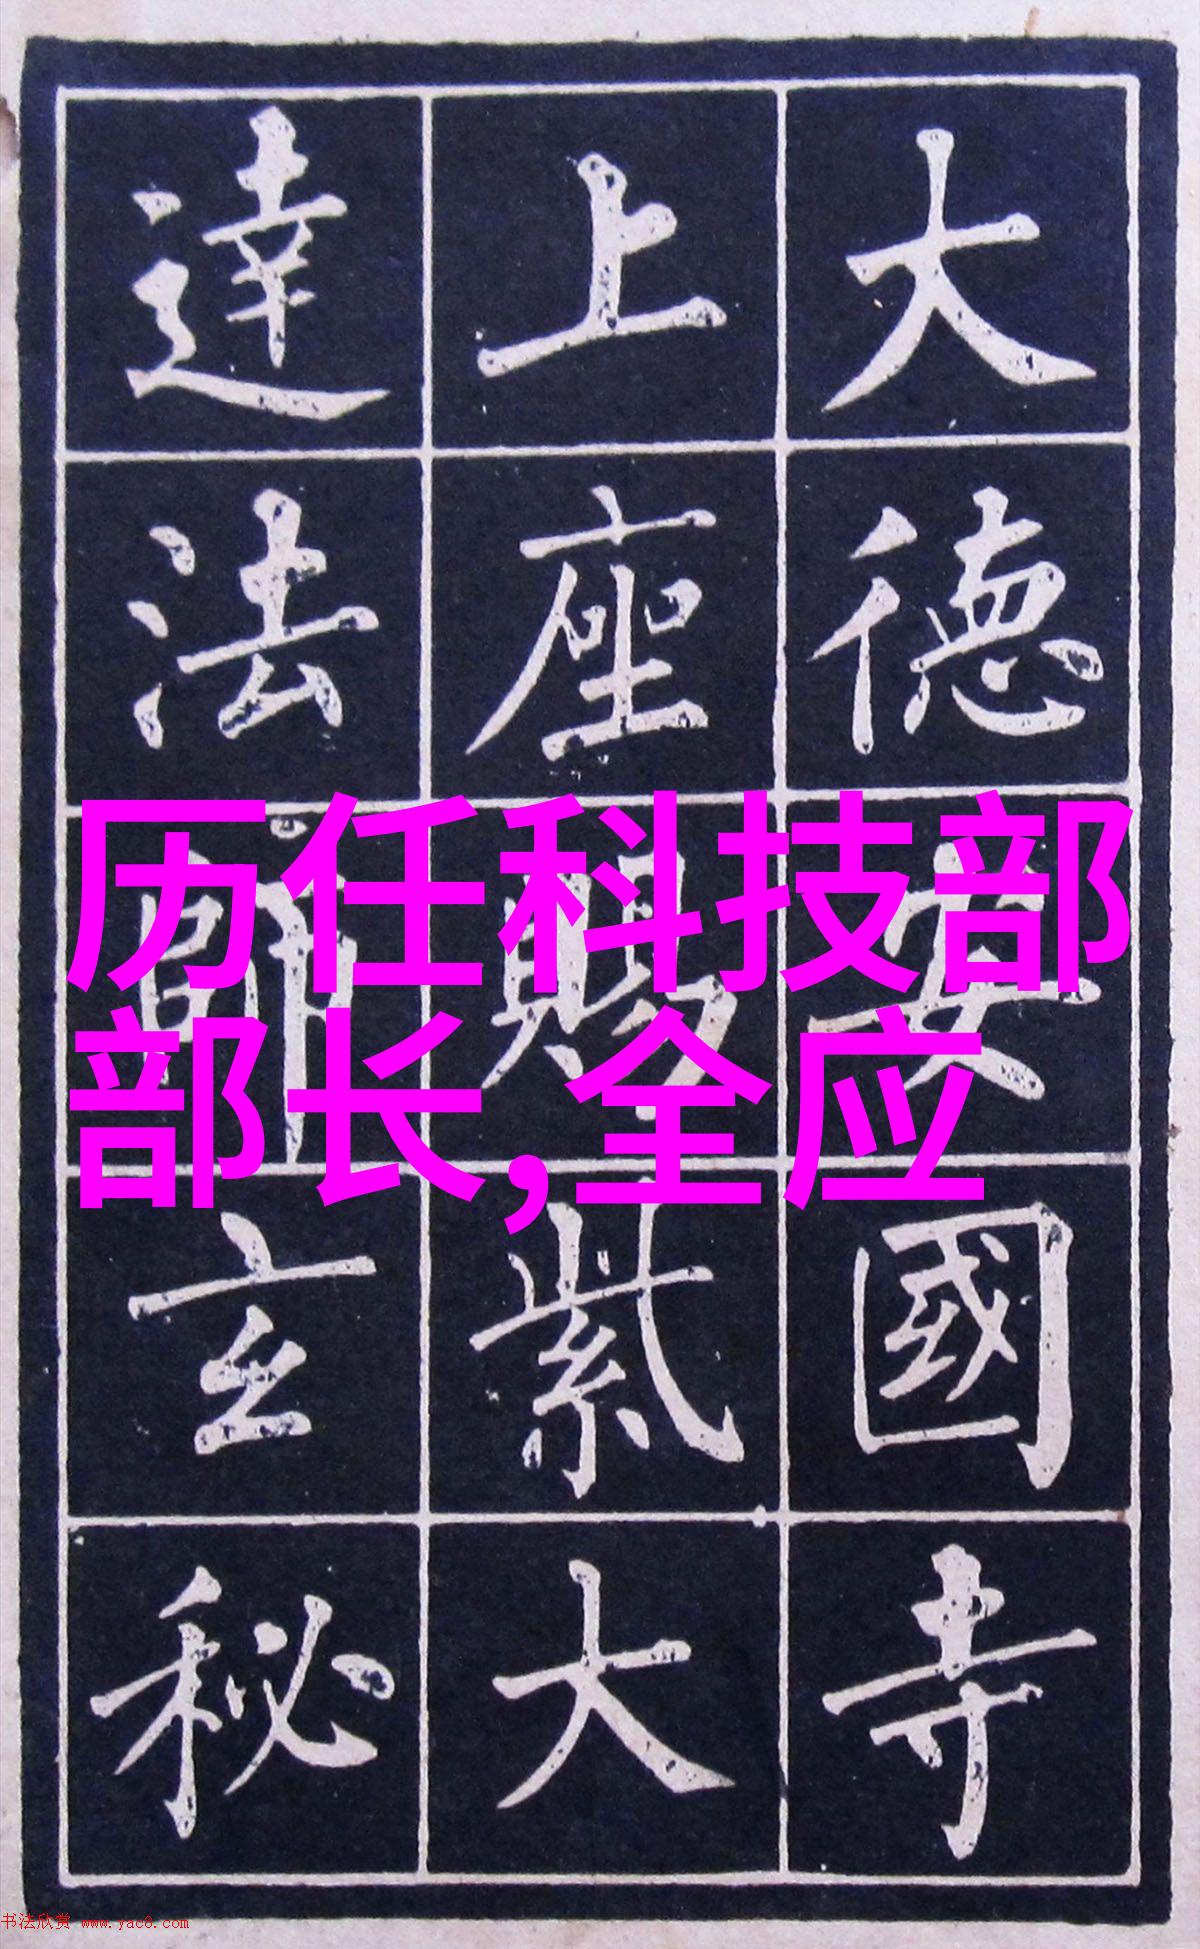 大德安國寺
上座賜紫大
達法師玄秘
历任科技部
部长,全应
书法欣赏 www.yac8.com